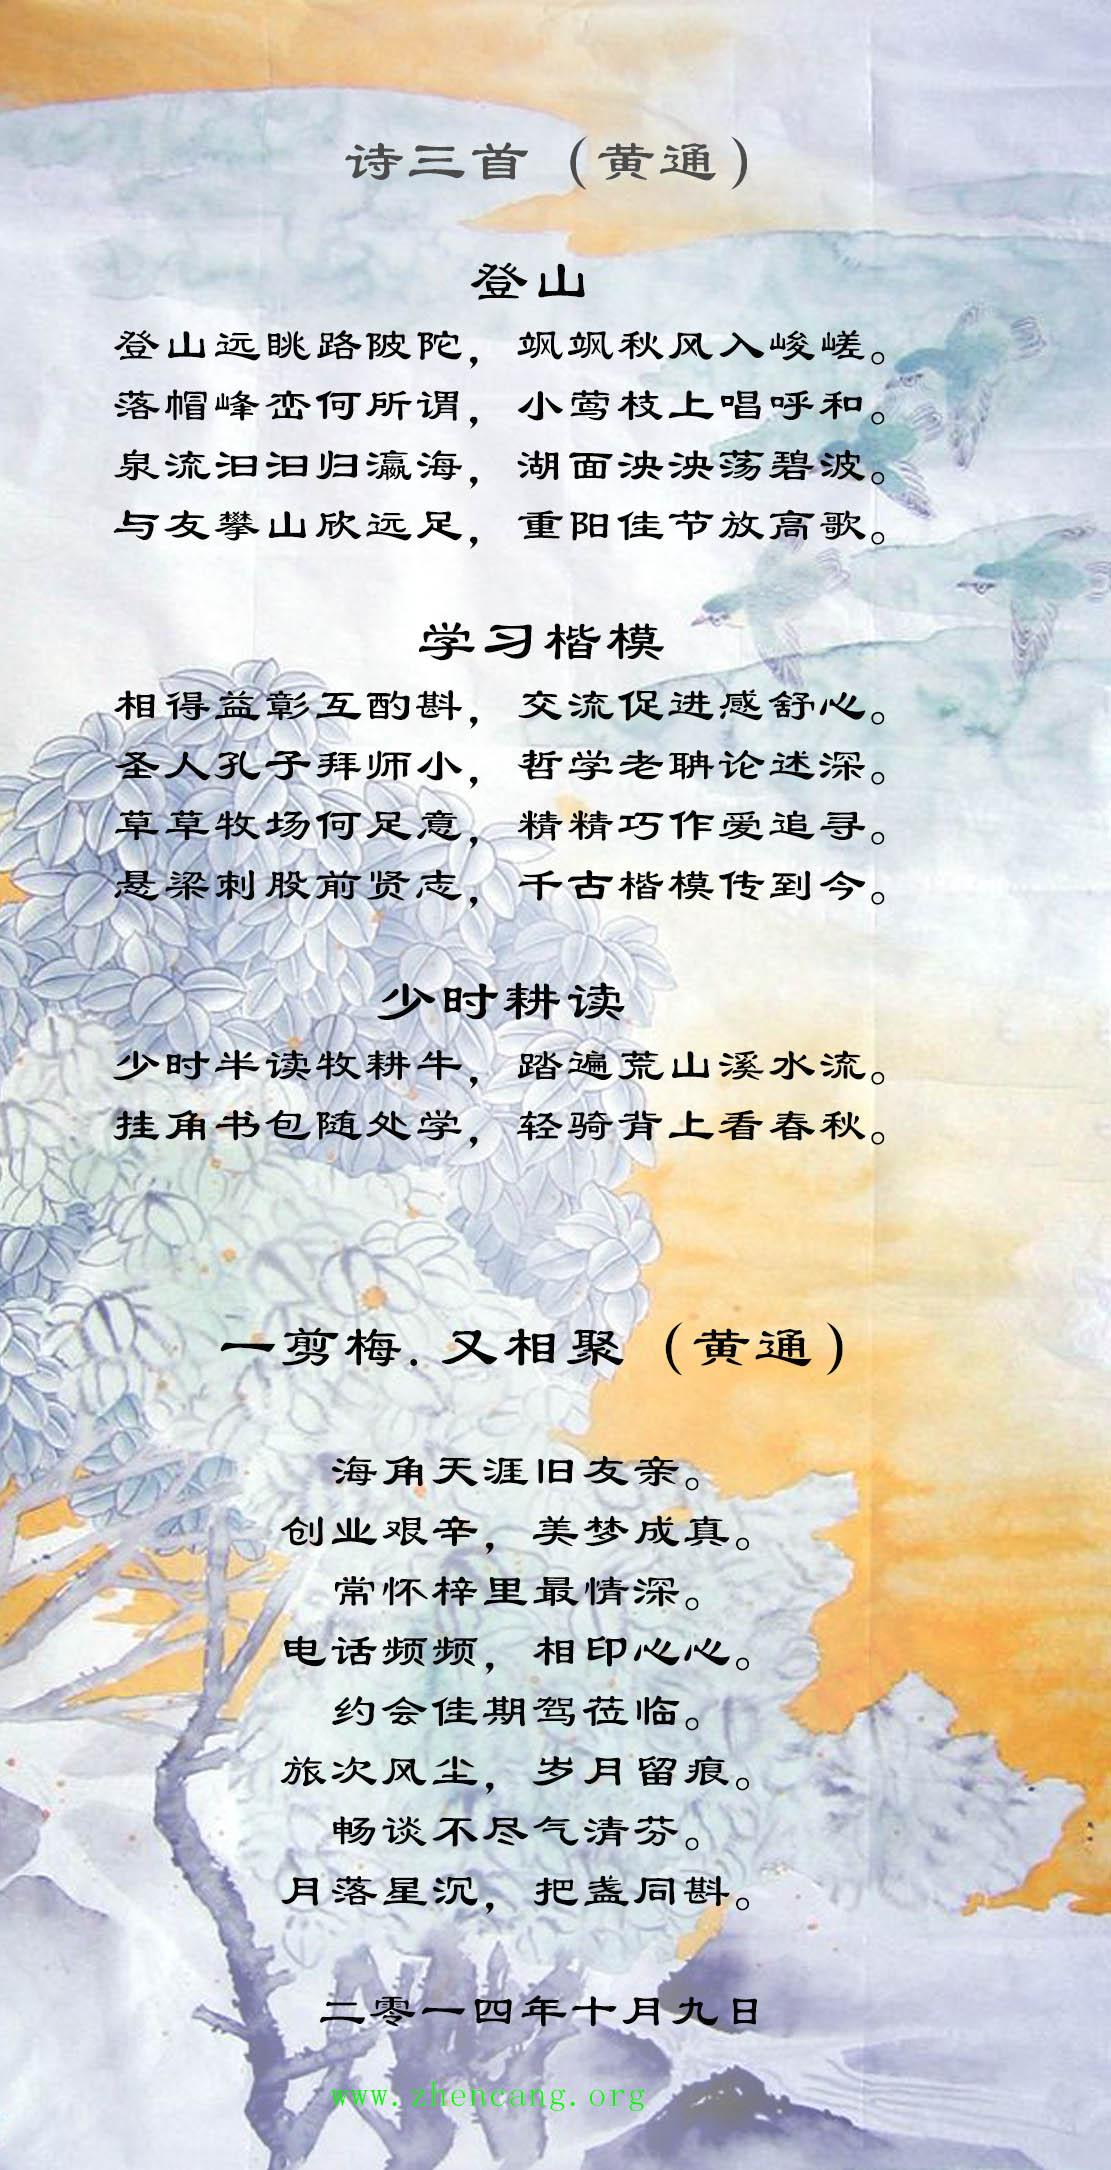 诗三首（黄通）
登山
登山远眺路陂陀，飒飒秋风入峻嵯。
落帽峰峦何所谓，小莺枝上唱呼和。
泉流汩汩归瀛海，湖面泱泱荡碧波。
与友攀山欣远足，重阳佳节放高歌。
学习楷模
相得益彰互酌斟，交流促进感舒心。
圣人孔子拜师小，哲学老聃论述深。
草草牧场何足意，精精巧作爱追寻。
悬梁刺股前贤志，千古楷模传到今。
少时耕读
少时半读牧耕牛，踏遍荒山溪水流。
挂角书包随处学，轻骑背上看春秋。
一剪梅.又相聚（黄通）
海角天涯旧友亲。
创业艰辛，美梦成真。
常怀梓里最情深。
电话频频，相印心心。
约会佳期驾莅临。
旅次风尘，岁月留痕。
畅谈不尽气清芬。
月落星沉，把盏同斟。
二零一四年十月九日
www.zhencang.org